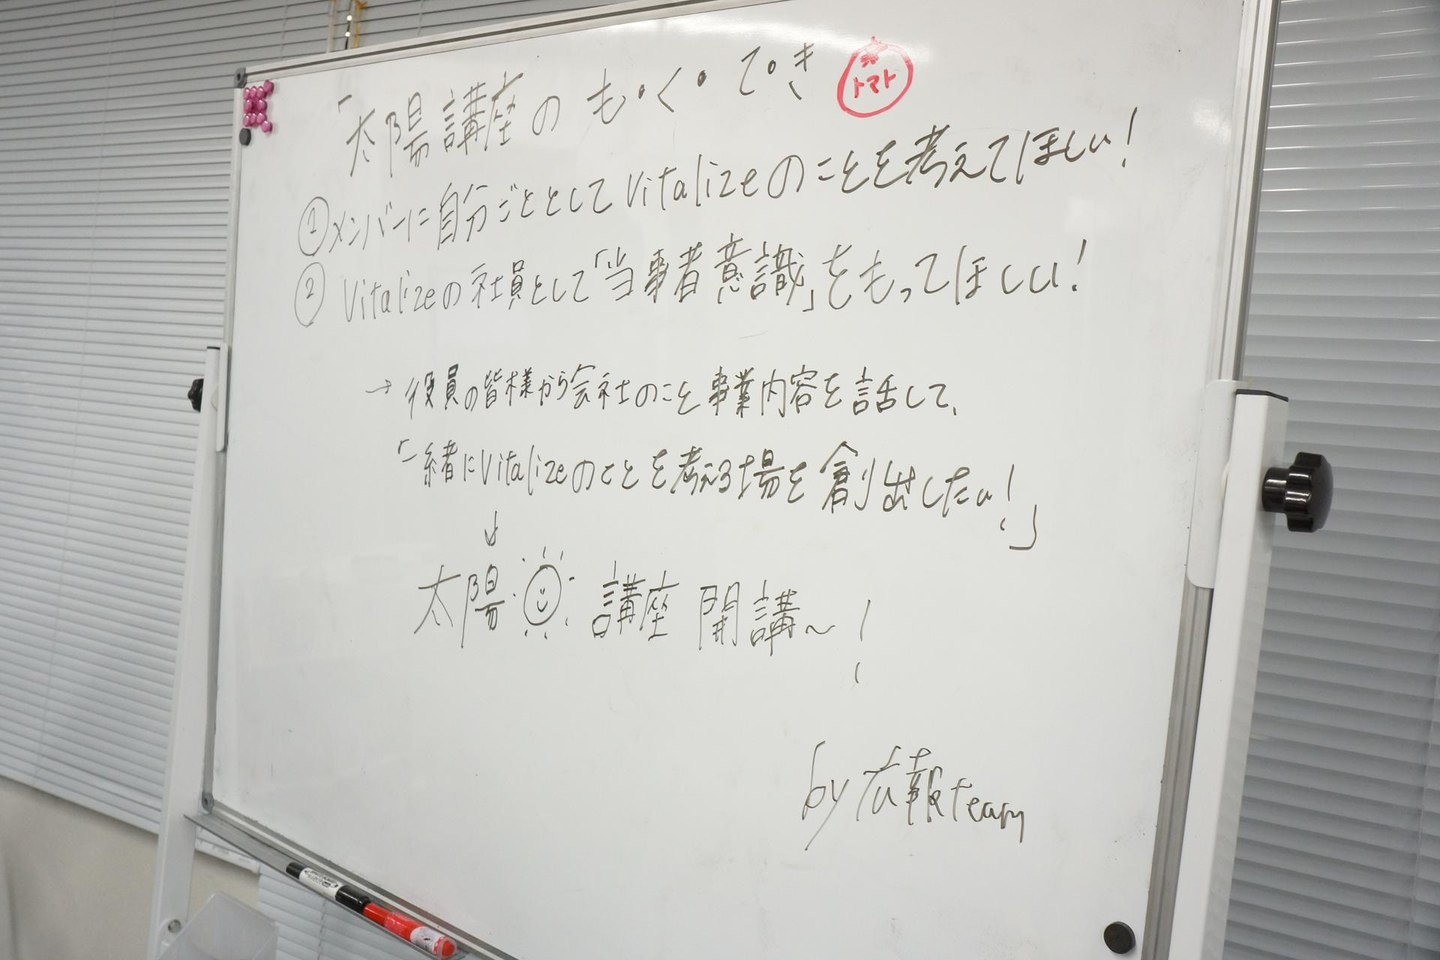 「太陽講座のも・く・てき
トマト
①メンバーに自分ごととしてVitalizeのことを考えてほしい!
②Vitalizeの社員として「当事者意識」をもってほしい!
→役員の皆様から会社のこと事業内容を話して、
「一緒にVitalizeのことを考える場を創出したい!」
↓
太陽 講座 開講〜!
by広報team